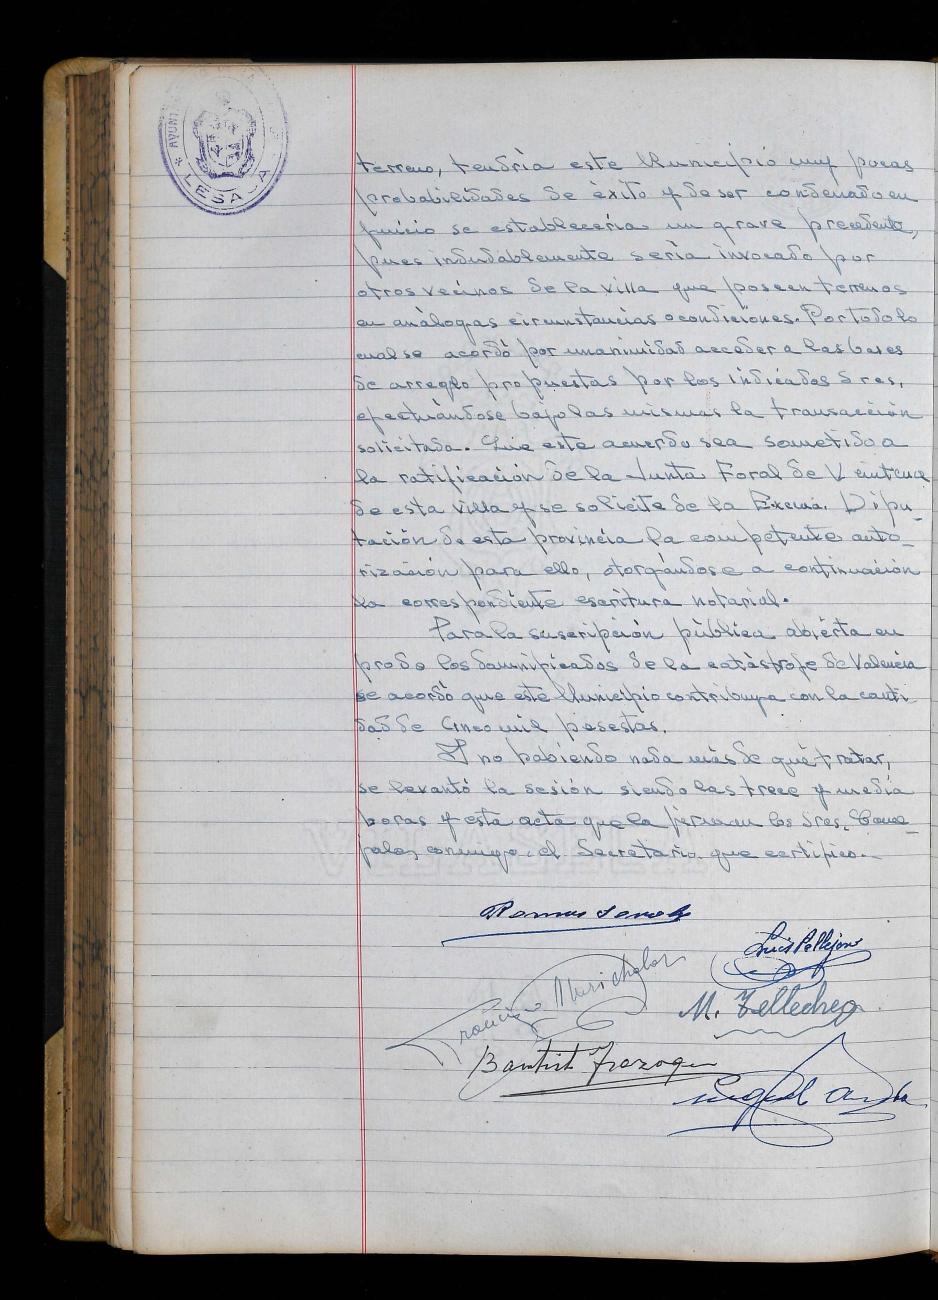 LESACA
terreno, tendría este Municipio muy pocas
probabilidades de éxito y de ser condenado en
juicio se establecería un grave precedente,
pues indudablemente sería invocado por
otros vecinos de la villa que poseen terrenos
en análogas circunstancias o condiciones. Por todo lo
cual se acordó por unanimidad acceder a las bases
de arreglo propuestas por los indicados Sres.
efectuándose bajo las mismas la transacción
solicitada. Que este acuerdo sea sometido a
la ratificación de la Junta Foral de Veintena
de esta villa y se solicite de la Excma. Dipu-
tación de esta provincia la competente auto-
rización para ello, otorgándose a continuación
la correspondiente escritura notarial.
Para la suscripción pública abierta en
pro de los damnificados de la catástrofe de Valencia
se acordó que este Municipio contribuya con la canti
dad de cinco mil pesestas.
Y no habiendo nada más de qué tratar,
se levantó la sesión siendo las trece y media
horas y esta acta que la firman los Sres. Conce-
jales, conmigo, el Secretario, que certifico.-
Luis Pellejero
Francisco
M. Tellechea
Bautista Irazoqui
Miguel